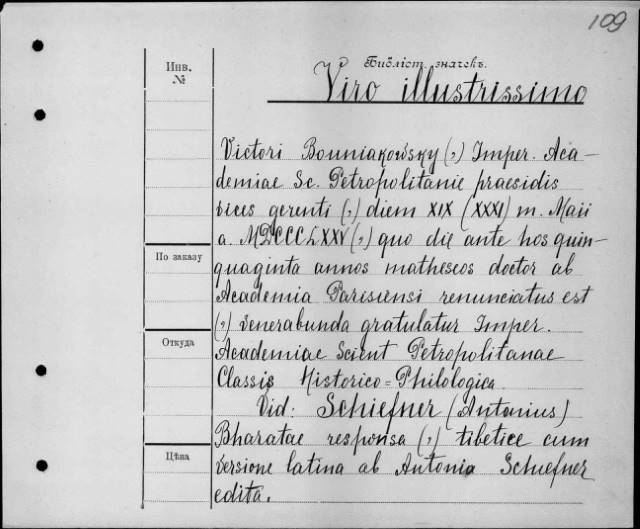 109
Инв.
№
Библіот. значекъ.
Viro illustrissimo
Victori Bouniakowsky (,) Imper. Aca-
demiae Sc. Petropolitanie praesidis
vices gerenti (,) diem XIX (XXXI) m. Maii
a. MDCCCLXXV (,) quo die ante hos quin-
По заказу
quaginta annos matheseos doctor ab
Academia Parisiensi renunciatus est
(,) venerabunda gratulatur Imper.
Откуда
Academiae Scient Petropolitanae
Classis Historico=Philologica.
Vid: Schiefner (Antonius)
Bharatae responsa (,) tibetice cum
Цѣна
versione latina ab Antonio Schiefner
edita.